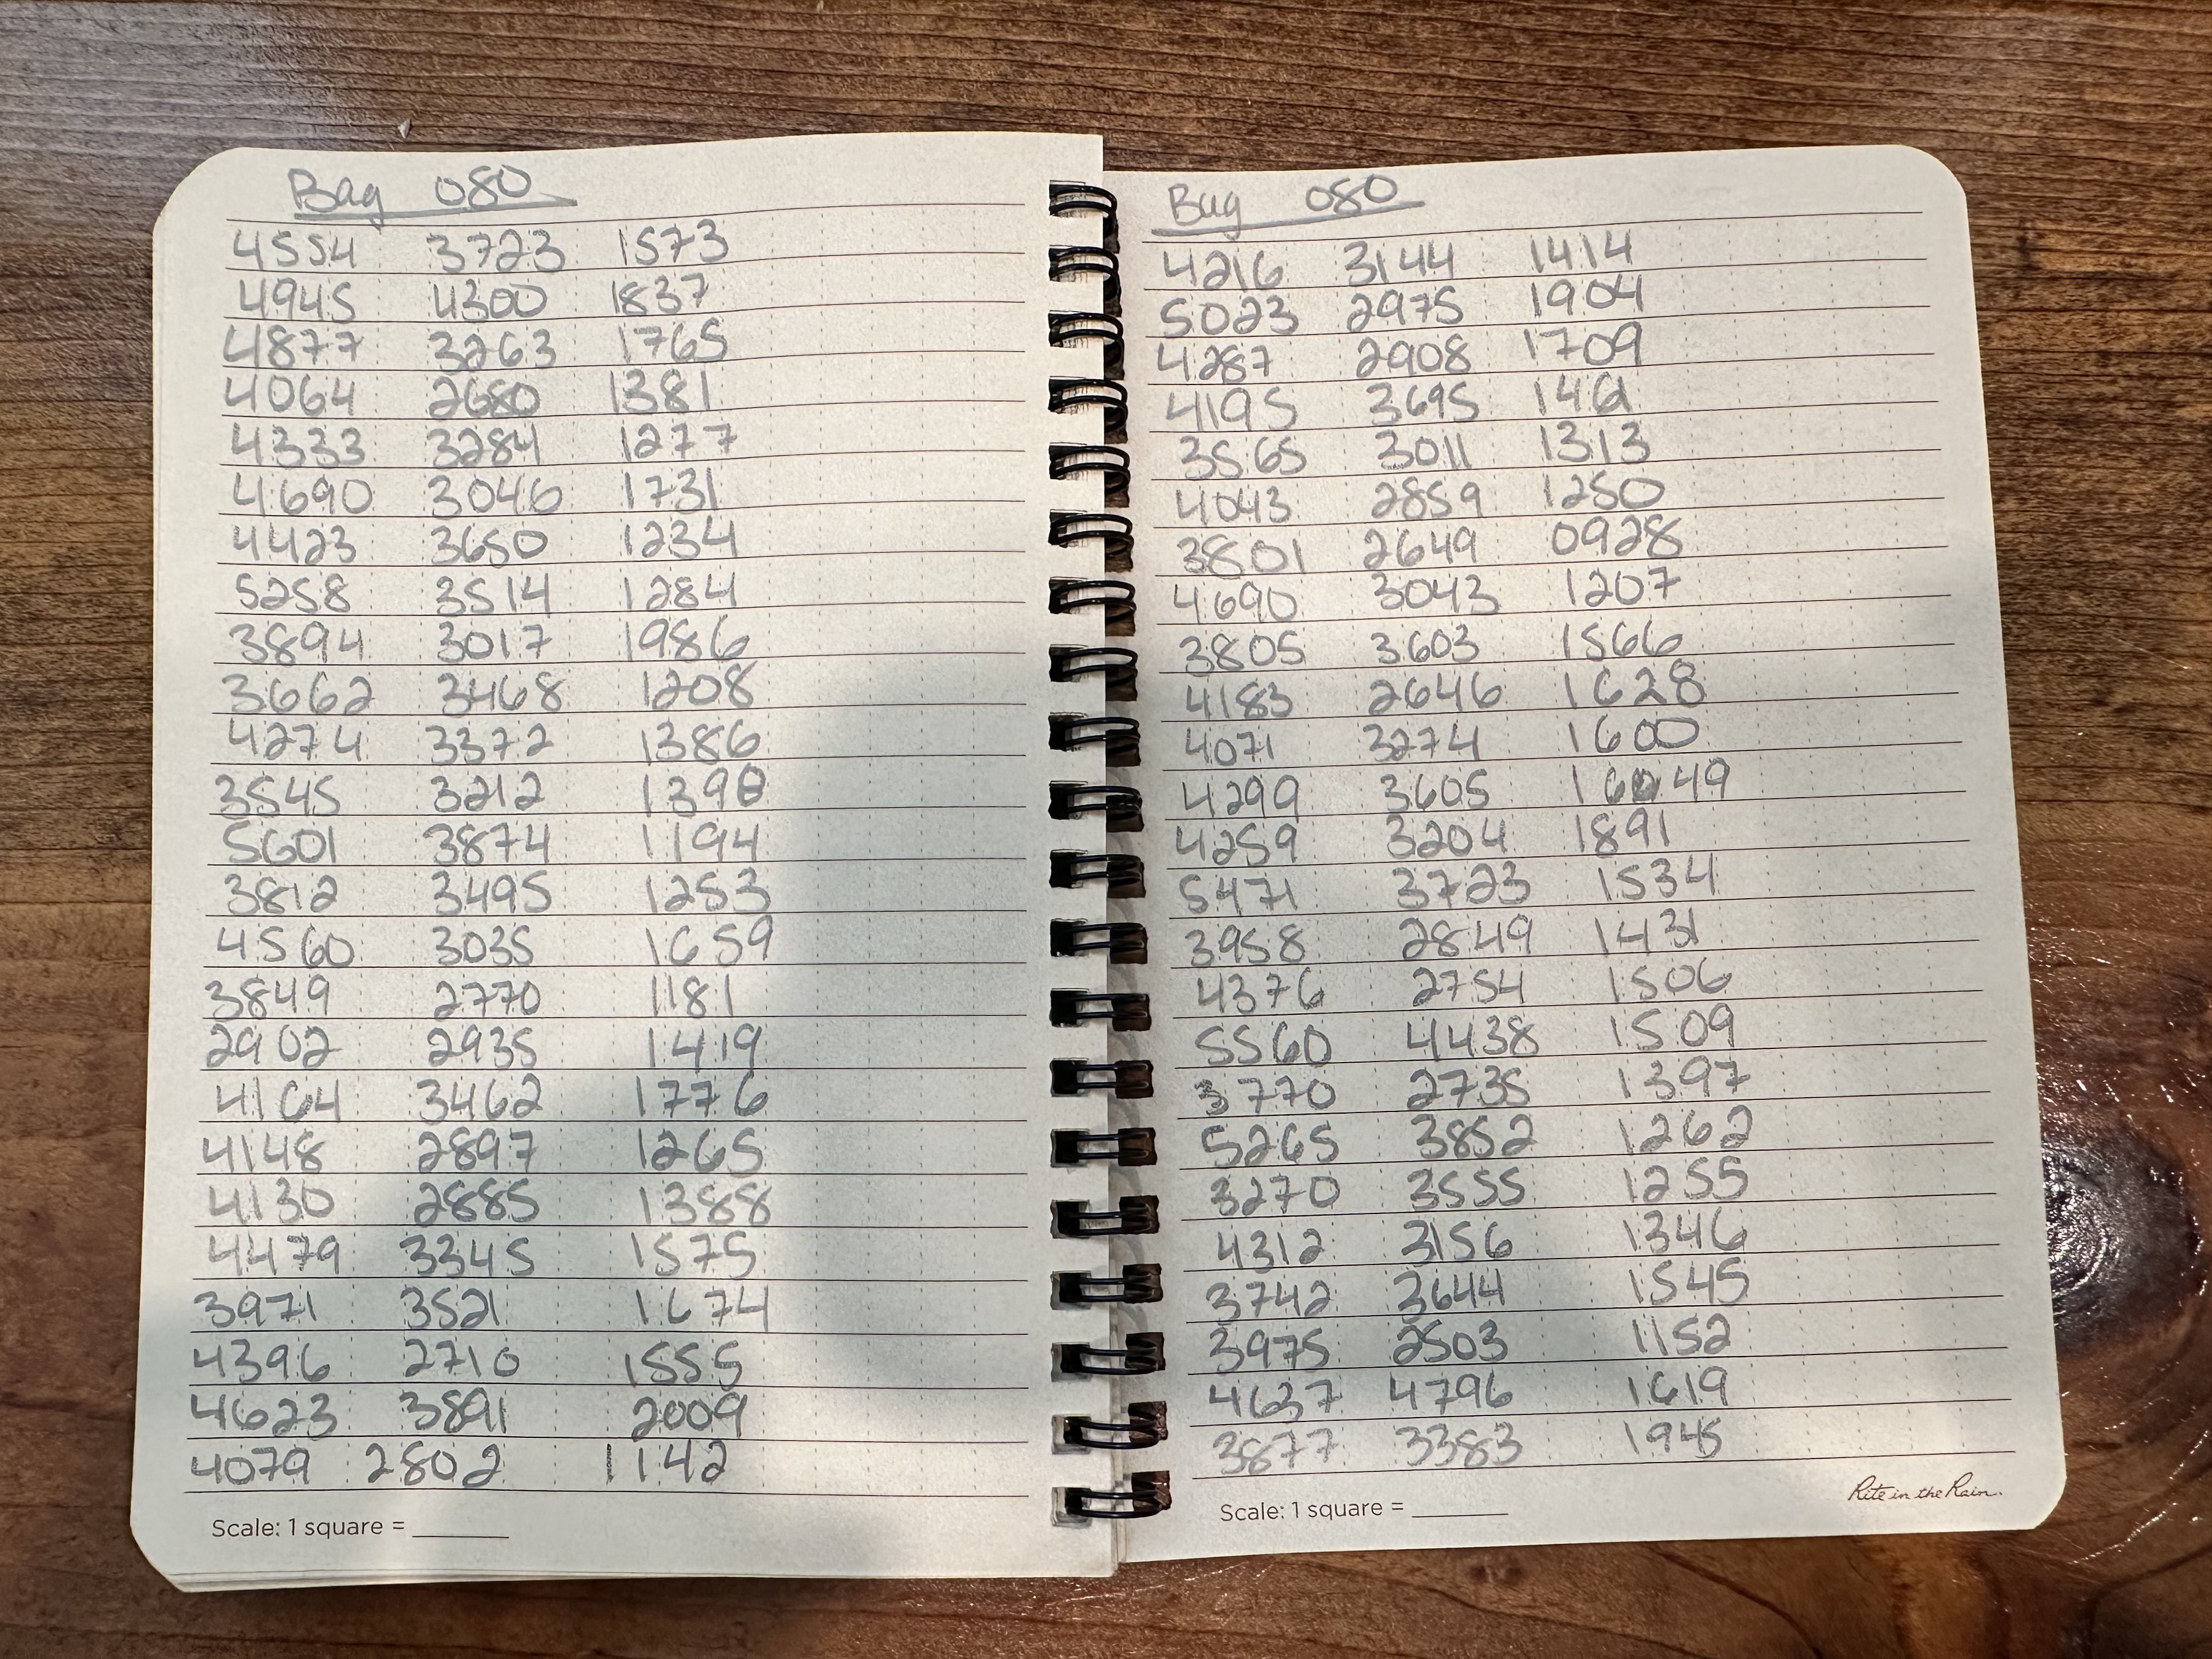 Bag 080
4554 3723 1573
4945 4300 1837
4877 3263 1765
4064 2680 1381
4333 3284 1277
4690 3046 1731
4423 3650 1234
5258 3514 1284
3894 3017 1986
3662 3468 1208
4274 3372 1386
3545 3212 1390
5601 3874 1194
3812 3495 1253
4560 3035 1659
3849 2770 1181
2902 2935 1419
4164 3462 1776
4148 2897 1265
4130 2885 1388
4479 3345 1575
3971 3521 1674
4396 2716 1555
4623 3891 2009
4079 2802 1142
Scale: 1 square = ____
Bag 080
4216 3144 1414
5023 2975 1904
4287 2908 1709
4195 3695 1461
3565 3011 1313
4043 2859 1250
3801 2649 0928
4690 3043 1207
3805 3603 1566
4183 2646 1628
4071 3274 1600
4299 3605 1649
4259 3204 1891
5471 3723 1534
3958 2849 1431
4376 2754 1506
5560 4438 1509
3770 2735 1397
5265 3852 1262
3270 3555 1255
4312 3156 1346
3742 3644 1545
3975 2503 1152
4637 4796 1619
3877 3383 1945
Scale: 1 square = ____
Rite in the Rain